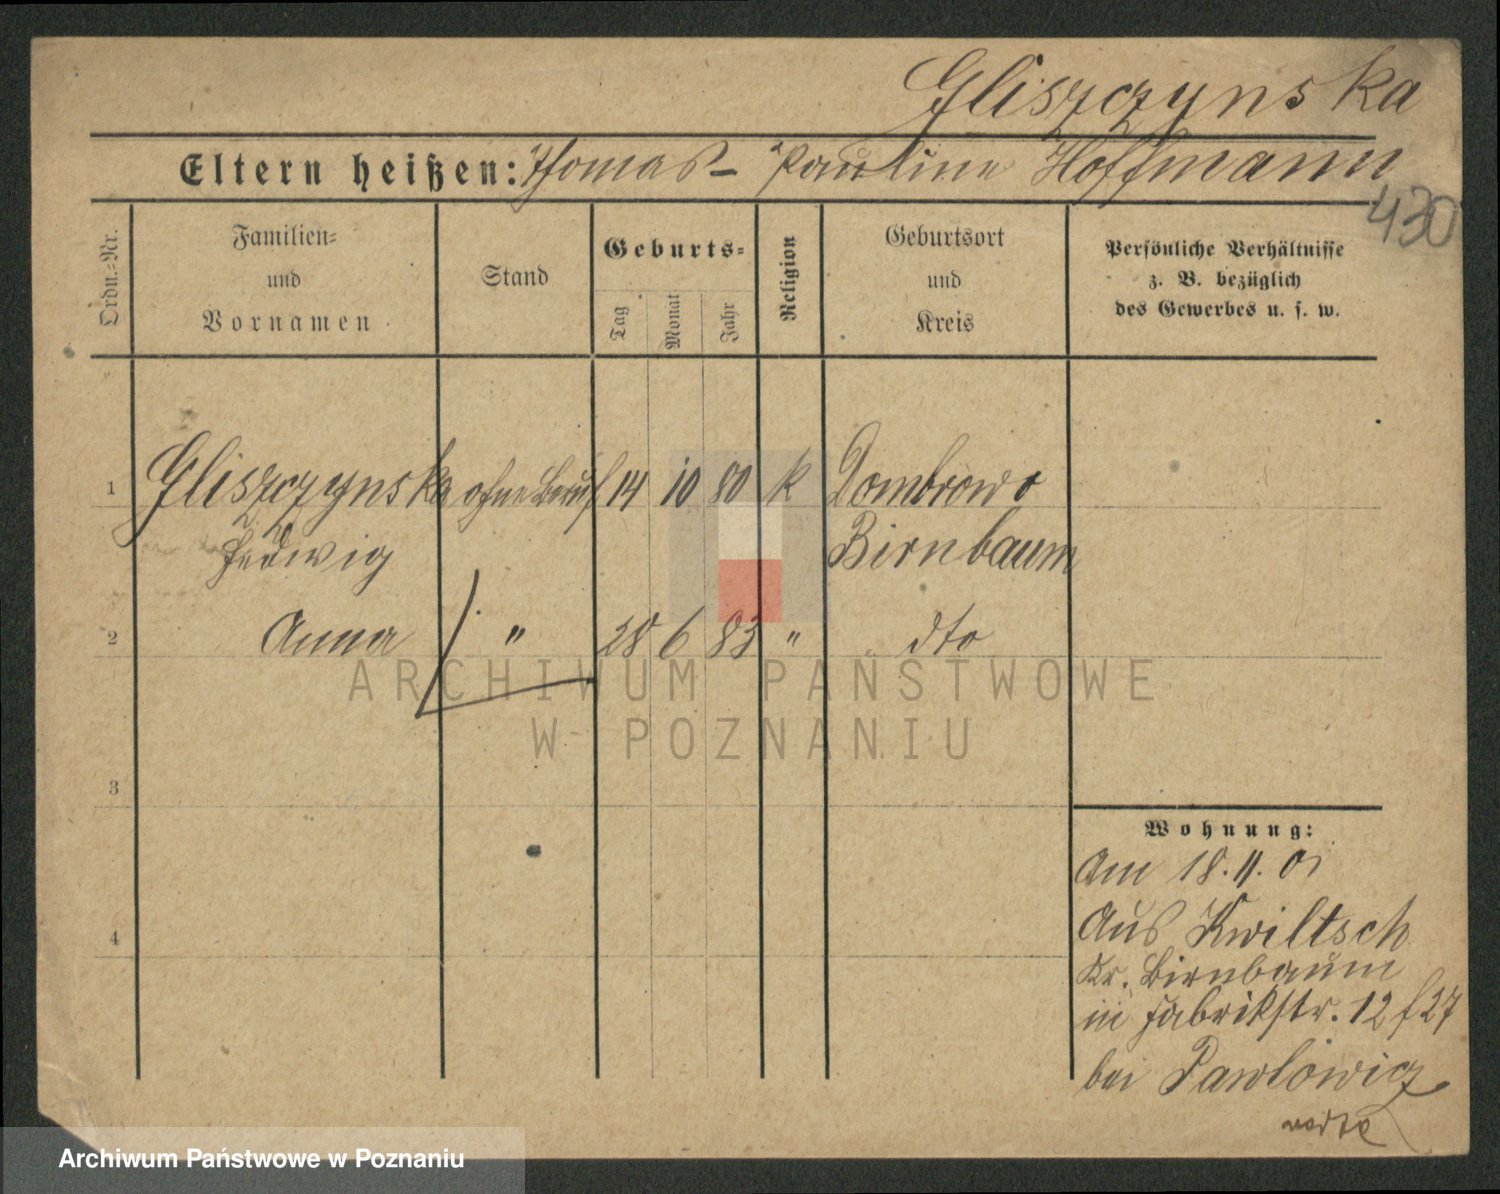 Gliszczynska
Eltern heißen: Thomas - Pauline Hoffmann
430
Ordn.-Nr.
Familien-
und
Vornamen
Stand
Geburts-
Tag
Monat
Jahr
Religion
Geburtsort
und
Kreis
Persönliche Verhältnisse
z. B. bezüglich
des Gewerbes u. s. w.
1 Gliszczynska ohne Beruf 14 10 80 k Dombrowo
Hedwig Birnbaum
2 Anna " 28 6 83 " dto
3
4
Wohnung:
Am 18.11.01
Aus Kwiltsch
Kr. Birnbaum
in Fabrikstr. 12 f 27
bei Pawlowicz
ARCHIWUM PAŃSTWOWE
W POZNANIU
Archiwum Państwowe w Poznaniu